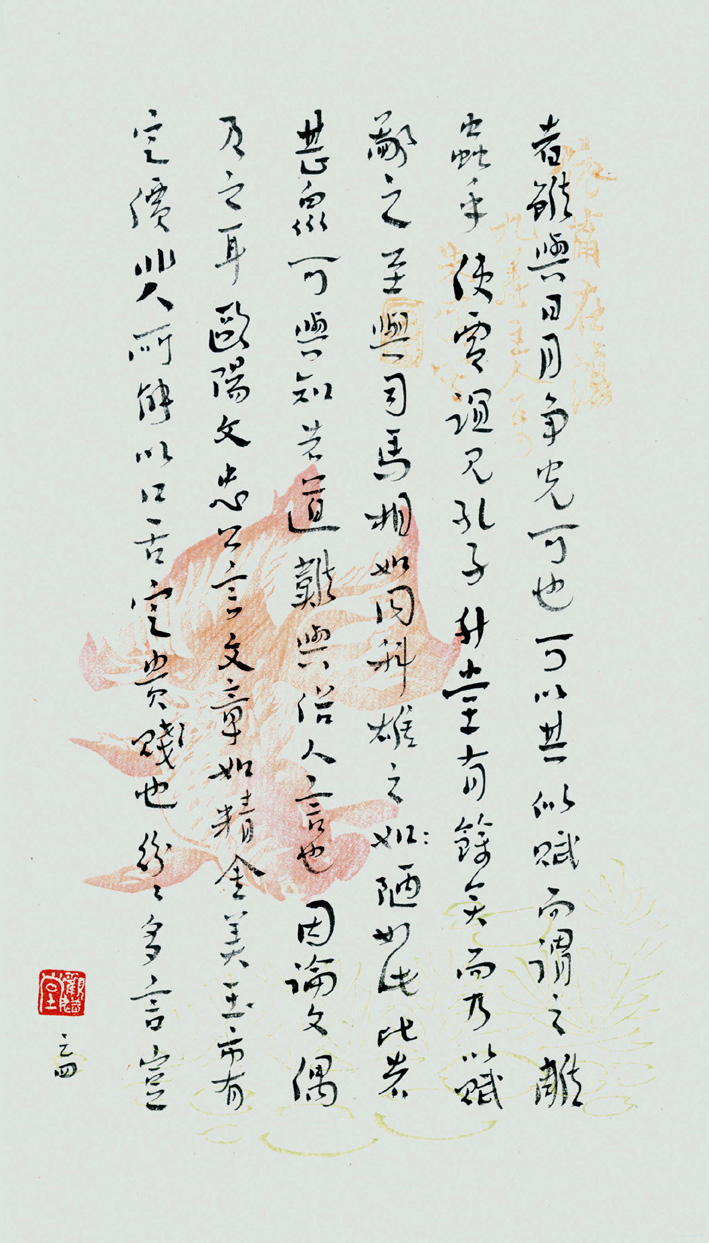 者雖與日月爭光可也可以其似賦而謂之雕
蟲乎使賈誼見孔子升堂有餘矣而乃以賦
鄙之至與司馬相如同科雄之如陋如此比者
甚眾可與知者道難與俗人言也因論文偶
及之耳歐陽文忠公言文章如精金美玉市有
定價非人所能以口舌定貴賤也紛〻多言豈
之四